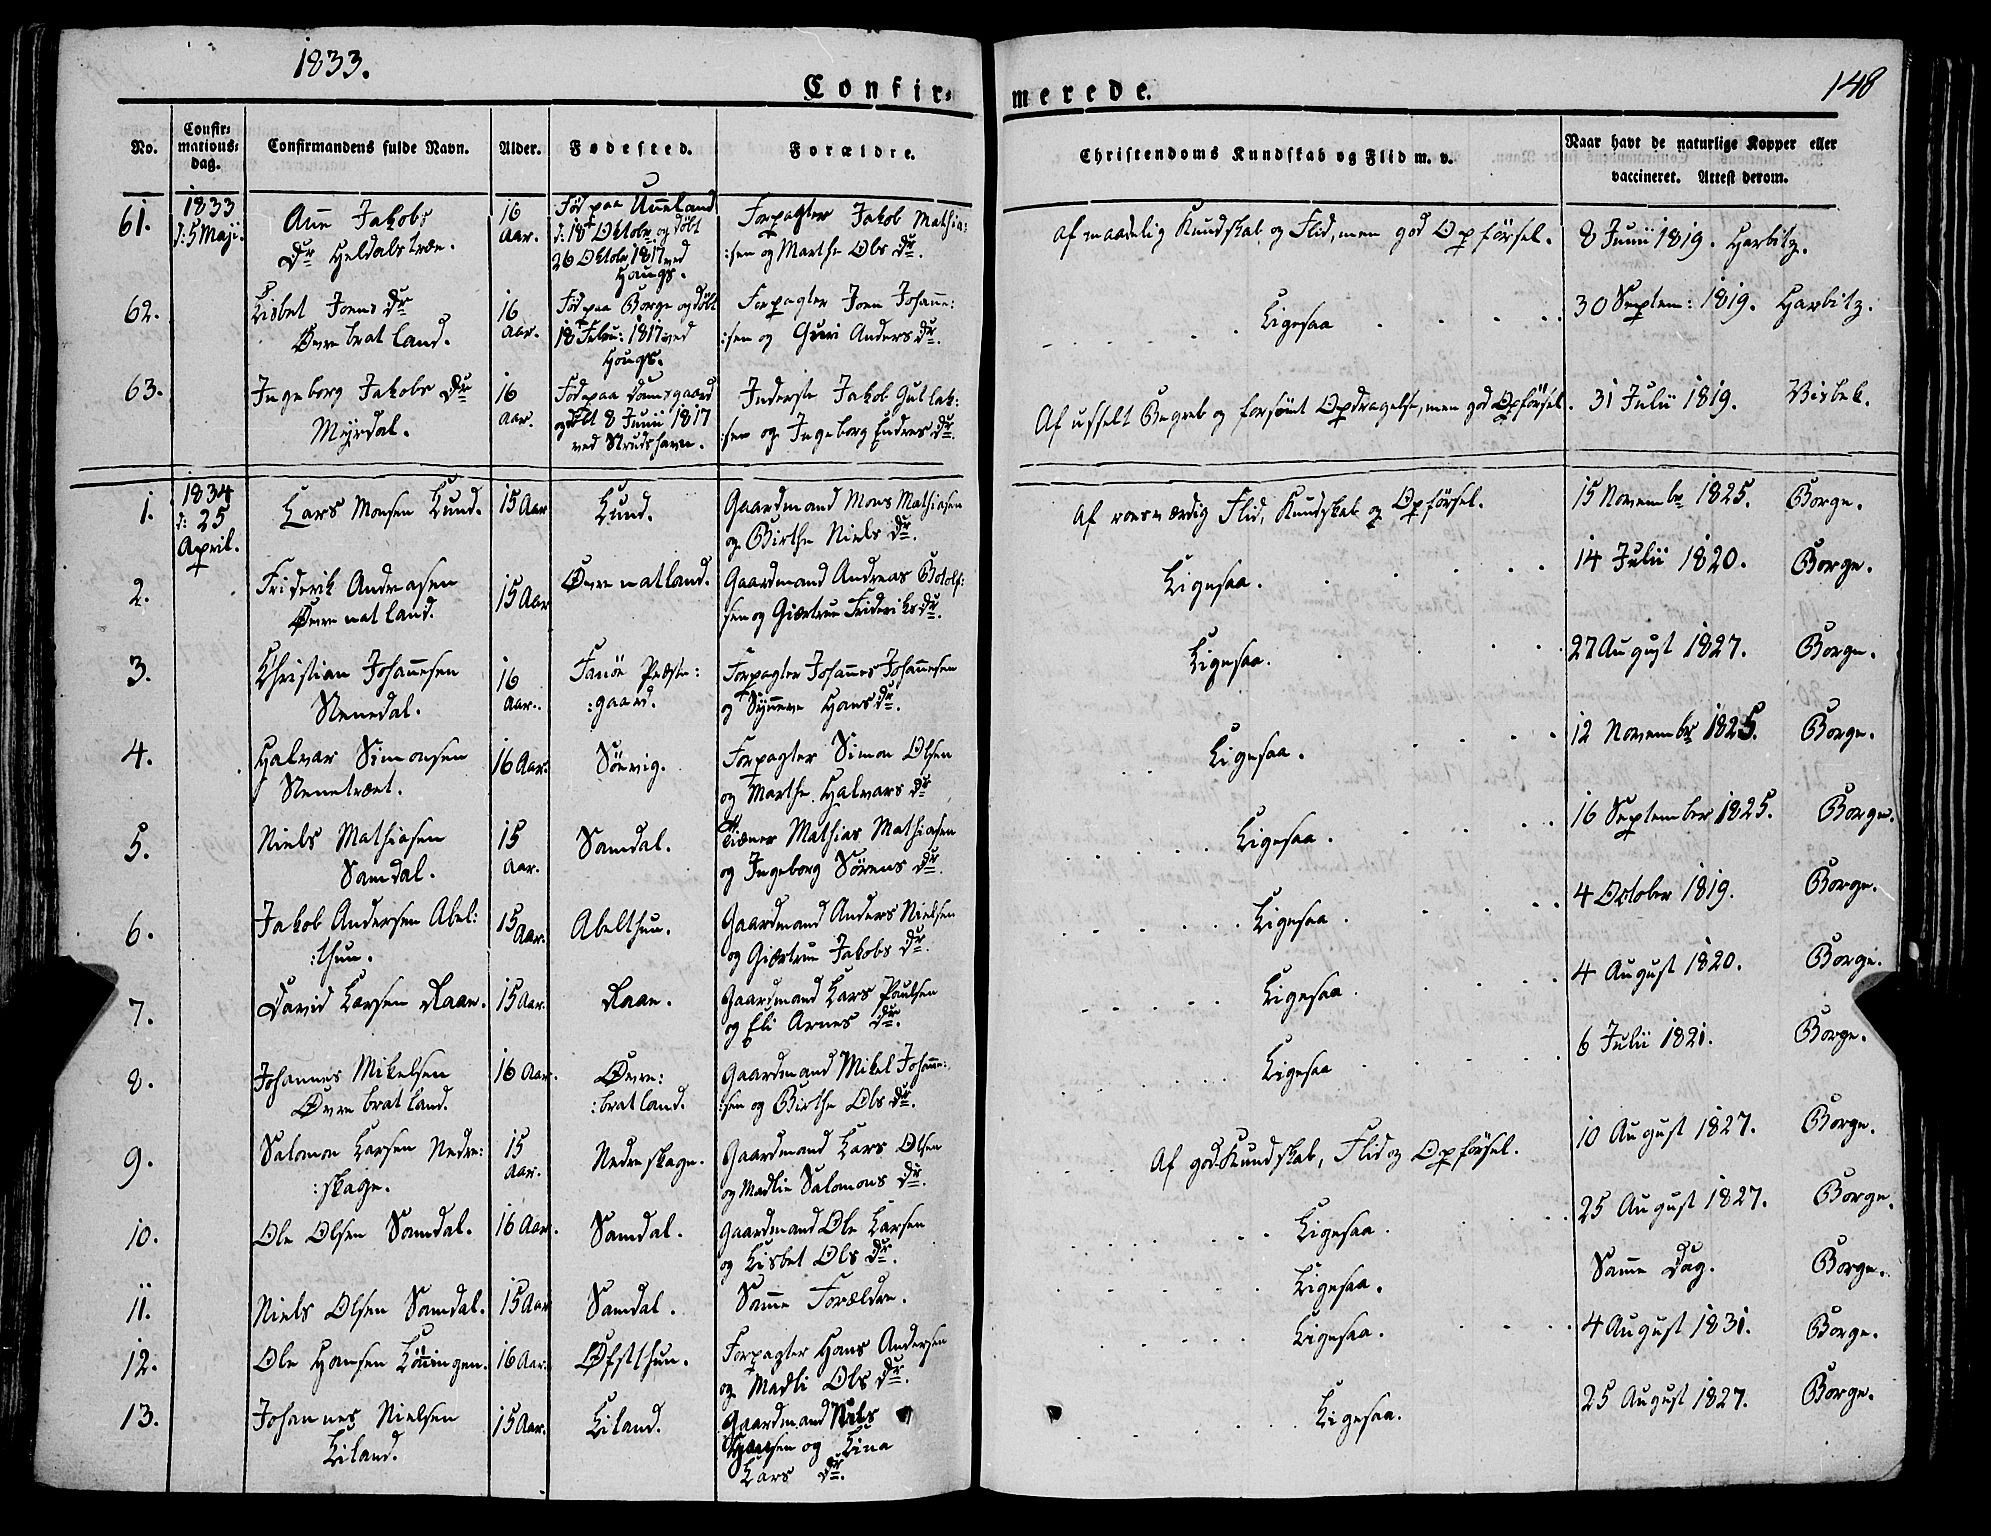 1833.
148
Confir=
merede.
No.
Confir=
mations=
dag.
Confirmandens fulde Navn.
Alder.
Fødested.
Forældre.
Christendoms Kundskab og Flid m. v.
Naar havt de naturlige Kopper eller
vaccineret. Attest derom.
61.
1833
d: 5 Maji.
Anne Jakobs
Dr Heldalstræe.
16
Aar.
Fød paa Unneland
d: 18d Oktobr og døbt
26 Oktobr 1817 ved
Haugs.
Forpagter Jakob Mathia:
:sen og Marthe Ols Dr.
Af maadelig Kundskab og Flid, men god Opførsel.
8 Junii 1819. Harbitz.
62.
Lisbet Joens Dr
Øvrebratland.
16
Aar.
Fød paa Borge og døbt
18 Febru: 1817 ved
Hougs.
Forpagter Joen Johanne:
:sen og Guri Anders Dr.
Ligesaa
30 Septem: 1819. Harbitz.
63.
Ingeborg Jakobs Dr
Myrdal.
16
Aar.
Fød paa Damsgaard
og døbt 8 Junii 1817
ved Strudshavn.
Inderste Jakob Gutlak:
:sen og Ingeborg Endres Dr.
Af usselt Begreb og forsømt Opdragelse, men god Opførsel.
31 Julii 1819. Visbek.
1.
1834
d: 25
April.
Lars Monsen Lund.
15 Aar
Lund.
Gaardmand Mons Mathiasen
og Birthe Niels Dr.
Af roesværdig Flid, Kundskab og Opførsel.
15 Novembr 1825. Borge.
2.
Friderik Andreasen
Øvrenatland.
15 Aar
Øvrenatland.
Gaardmand Andreas Botolf:
sen og Giertrue Frideriks Dr.
Ligesaa.
14 Julii 1820. Borge.
3.
Christian Johannesen
Stenedal.
16
Aar.
Fanöe Præste:
:gaard.
Forpagter Johannes Johannesen
og Synneve Hans Dr.
Ligesaa.
27 August 1827. Borge.
4.
Halvar Simonsen
Stenetræet.
16 Aar.
Söevig.
Forpagter Simon Olsen
og Marthe Halvars Dr
Ligesaa.
12 Novembr 1825. Borge.
5.
Niels Mathiasen
Samdal.
15
Aar.
Samdal.
Tiæner Mathias Mathiasen
og Ingeborg Sörens Dr.
Ligesaa.
16 September 1825. Borge.
6.
Jakob Andersen Abel:
:thun.
15 Aar.
Abelthun.
Gaardmand Anders Nielsen
og Giertrue Jakobs Dr.
Ligesaa.
4 October 1819. Borge.
7.
David Larsen Raae.
15 Aar.
Raae.
Gaardmand Lars Paulsen
og Eli Arnes Dr.
Ligesaa.
4 August 1820. Borge.
8.
Johannes Mikelsen
Øvrebratland.
16 Aar.
Øvre:
:bratland.
Gaardmand Mikel Johanne:
:sen og Birthe Ols Dr.
Ligesaa
6 Julii 1821. Borge.
9.
Salomon Larsen Nedre:
:skage.
15
Aar.
Nedreskage.
Gaardmand Lars Olsen
og Madlie Salomons Dr.
Af god Kundskab, Flid og Opførsel.
10 August 1827. Borge.
10.
Ole Olsen Samdal.
16 Aar.
Samdal.
Gaardmand Ole Larsen
og Lisbet Ols Dr.
Ligesaa.
25 August 1827. Borge.
11.
Niels Olsen Samdal.
15 Aar
Samdal.
Samme Forældre.
Ligesaa.
Samme Dag. Borge.
12.
Ole Hansen Lönningen.
16 Aar.
Øfstthun.
Forpagter Hans Andersen
og Madli Ols Dr.
Ligesaa.
4 August 1831. Borge.
13.
Johannes Nielsen
Liland.
15 Aar.
Liland.
Gaardmand Niels
Hansen og Lina
Lars Dr.
Ligesaa.
25 August 1827. Borge.